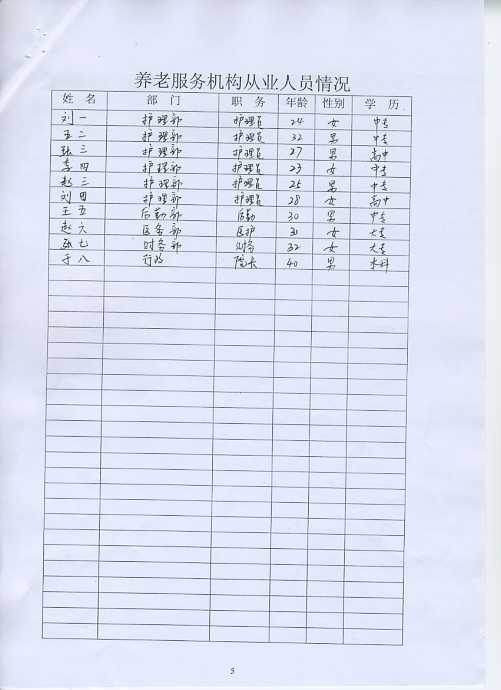 养老服务机构从业人员情况
姓 名 部 门 职 务 年龄 性别 学 历
刘一 护理部 护理员 24 女 中专
王二 护理部 护理员 32 男 中专
张三 护理部 护理员 27 男 高中
李四 护理部 护理员 23 女 中专
赵三 护理部 护理员 25 男 中专
刘四 护理部 护理员 28 女 高中
王五 后勤部 后勤 30 男 中专
赵六 医务部 医护 31 女 大专
张七 财务部 财务 32 女 大专
于八 行政 院长 40 男 本科
5